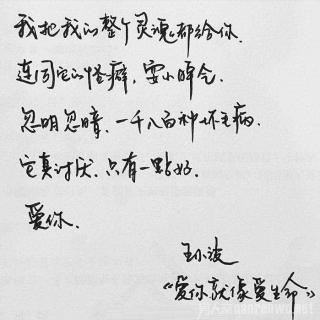 我把我的整个灵魂都给你.
连同它的怪癖,耍小脾气.
忽明忽暗,一千八百种坏毛病.
它真讨厌.只有一點好.
爱你.
王小波
《爱你就像爱生命》